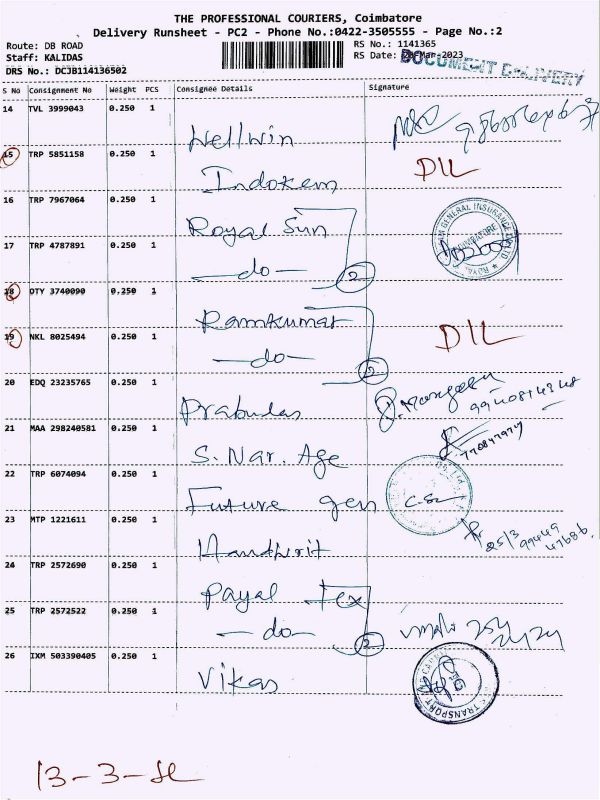 THE PROFESSIONAL COURIERS, Coimbatore
Delivery Runsheet - PC2 - Phone No.:0422-3505555 - Page No.:2
Route: DB ROAD RS No.: 1141365
Staff: KALIDAS RS Date: -Mar-2023
DRS No.: DCJB114136502 DOCUMENT DELIVERY
S No Consignment No Weight PCS Consignee Details Signature
14 TVL 3999043 0.250 1 Wellwin
15 TRP 5851158 0.250 1 Indokem DIL
16 TRP 7967064 0.250 1 Royal Sun
17 TRP 4787891 0.250 1 —do— 2
18 DTY 3740090 0.250 1 Ramkumar
19 NKL 8025494 0.250 1 —do— 2 DIL
20 EDQ 23235765 0.250 1 Prabudas
21 MAA 298240581 0.250 1 S. Nar. Age
22 TRP 6074094 0.250 1 Future gen
23 MTP 1221611 0.250 1 25/3 99449 47686
24 TRP 2572690 0.250 1 Payal Tex
25 TRP 2572522 0.250 1 —do— 2
26 IXM 503390405 0.250 1 Vikas
13-3-